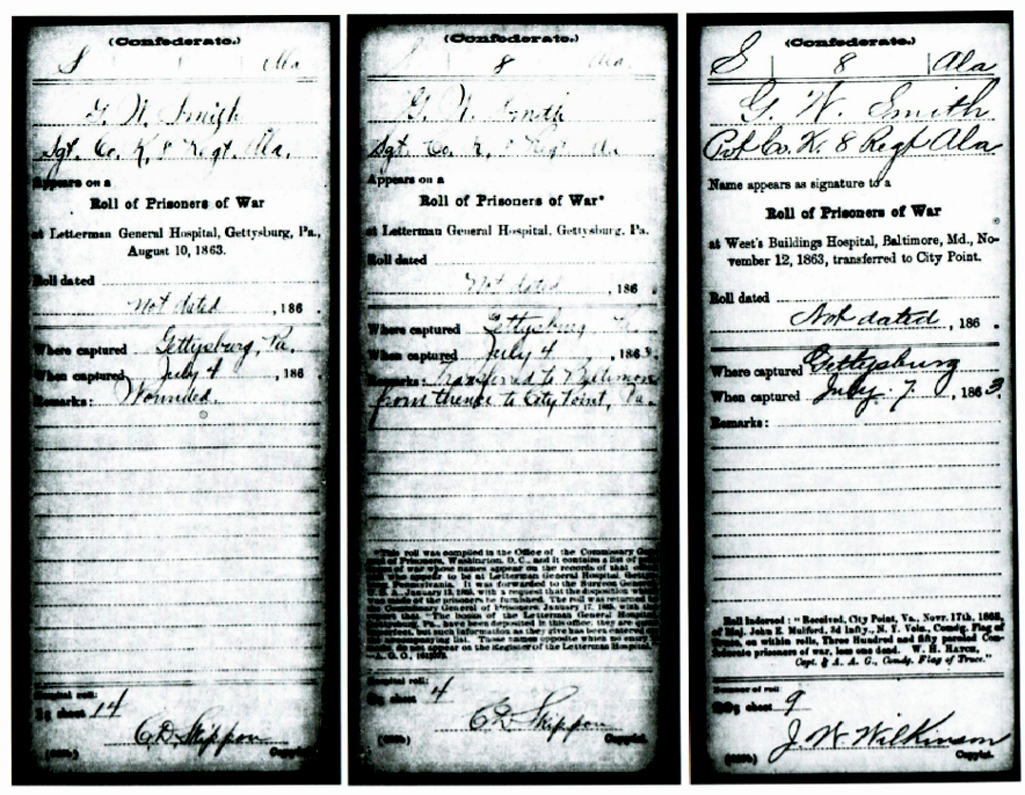 (Confederate.)
S | | Ala
G. W. Smith
Sgt. Co. K, 8 Regt. Ala.
Appears on a
Roll of Prisoners of War
at Letterman General Hospital, Gettysburg, Pa.,
August 10, 1863.
Roll dated
Not dated , 186 .
Where captured Gettysburg, Pa.
When captured July 4 , 186 .
Remarks: Wounded.
Hospital roll:
sheet 14
C.D. Skippon
Copyist.
(Confederate.)
S | 8 | Ala.
G. W. Smith
Sgt. Co. K, 8 Regt. Ala
Appears on a
Roll of Prisoners of War*
at Letterman General Hospital, Gettysburg, Pa.
Roll dated
Not dated , 186 .
Where captured Gettysburg, Pa.
When captured July 4 , 1863.
Remarks: Transferred to Baltimore
from thence to City Point, Va.
*This roll was compiled in the Office of the Commissary
of Prisoners, Washington, D. C., and it contains a list of
of war whose names appear on the records of that
who appear to be at Letterman General Hospital,
Pennsylvania. It was forwarded to the Surgeon General,
U. S. A., January 13, 1865, with a request that the disposition
made of the prisoners be furnished. The roll was returned
Commissary General of Prisoners, January 17, 1865, with the
that "The books of the Letterman General
Pa., have been deposited in this office; they are
but such information as they give has been entered
accompanying list. Those names opposite which no
do not appear on the Register of the Letterman Hospital.
Hospital roll:
sheet 4
C.D. Skippon
Copyist.
(Confederate.)
S | 8 | Ala
G. W. Smith
Pvt Co. K. 8 Regt Ala
Name appears as signature to a
Roll of Prisoners of War
at West's Buildings Hospital, Baltimore, Md., No-
vember 12, 1863, transferred to City Point.
Roll dated
Not dated , 186 .
Where captured Gettysburg
When captured July 7 , 1863.
Remarks:
Roll indorsed: "Received, City Point, Va., Novr. 17th, 1863,
of Maj. John E. Mulford, 3d Infty., N. Y. Vols., Comdg. Flag of
Truce, on within rolls, Three Hundred and fifty paroled Con-
federate prisoners of war, less one dead. W. H. HATCH,
Capt. & A. A. G., Comdg. Flag of Truce."
Number of roll
sheet 9
J. W. Wilkinson
Copyist.